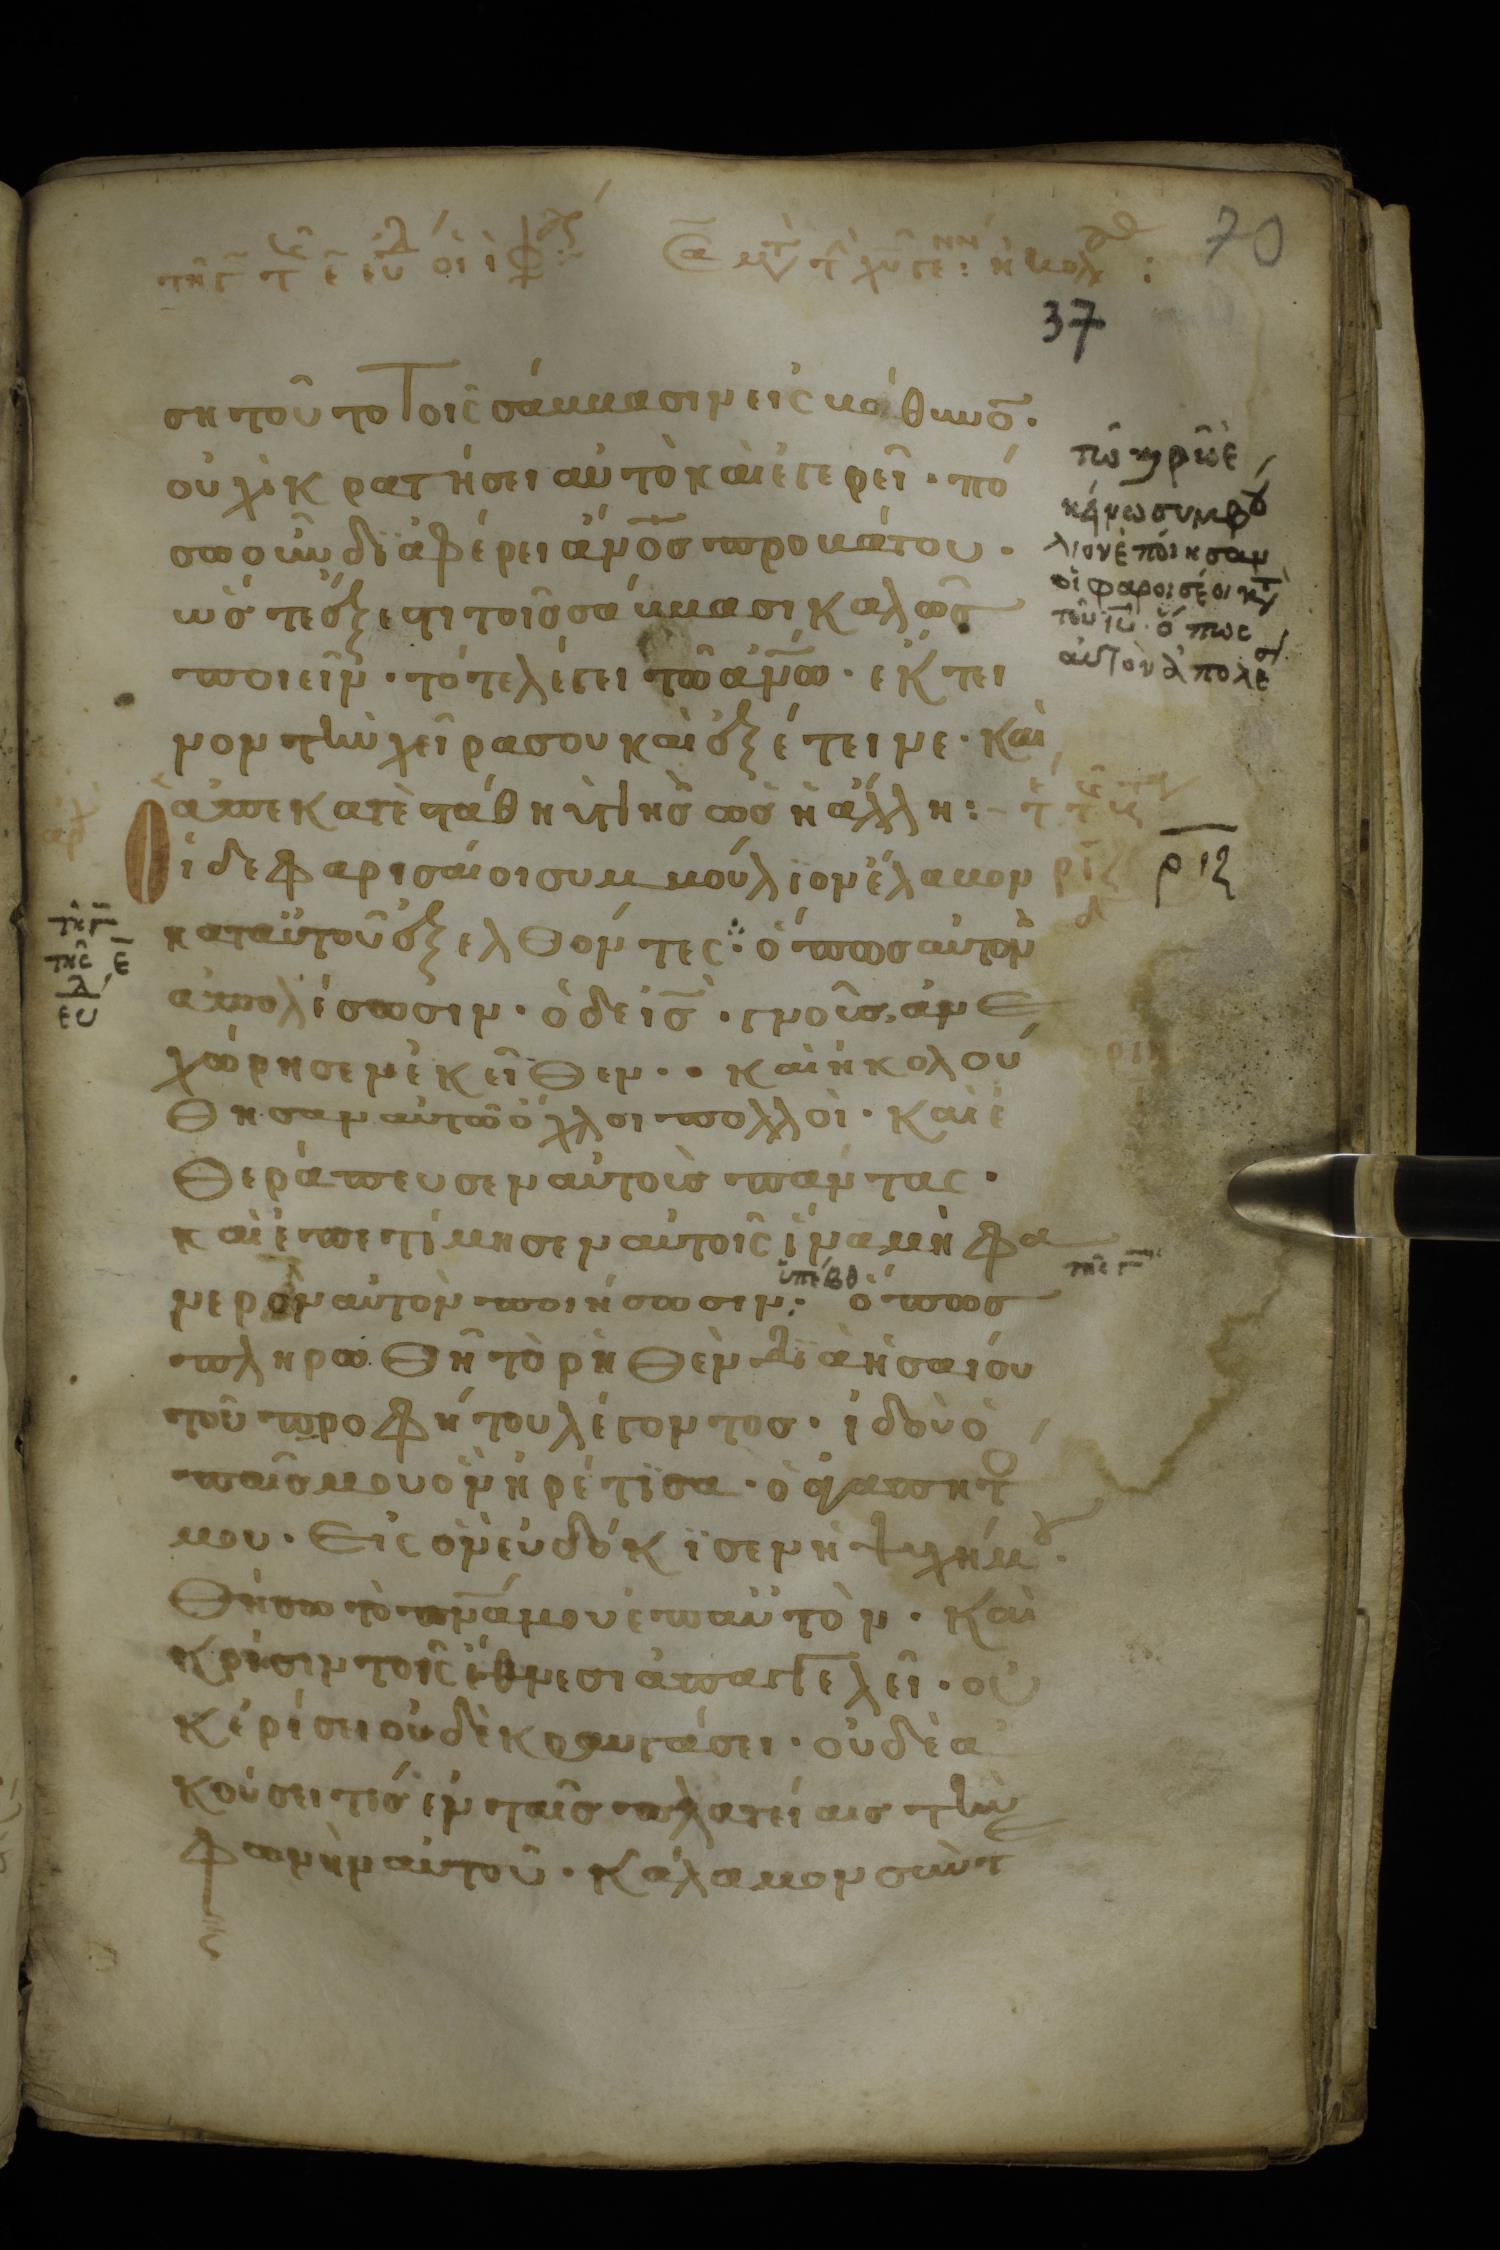 70
37
ση τοῦτο τοῖς σάββασιν εἰς βόθυνο̅·
οὐχὶ κρατήσει αὐτὸ καὶ ἐγερεῖ· πό
σω οὖν διαφέρει ἄν̅ο̅ς̅ προβάτου·
ὥστε ἔξεστι τοῖς σάββασι καλῶς
ποιεῖν· τότε λέγει τῶ ἀν̅ω̅· ἔκτει
νον τὴν χεῖρα σου καὶ ἐξέτεινε· καὶ
ἀπεκατεστάθη ὑγιὴς ὡς ἡ ἄλλη:-
Οἱ δε φαρισαῖοι συμβούλιον ἔλαβον
κατ αὐτοῦ ἐξελθόντες: ὅπως αὐτὸν
ἀπολέσωσιν· ὁ δε ι̅ς̅· γνοὺς, ἀνε
χώρησεν ἐκεῖθεν·· καὶ ἠκολού
θησαν αὐτῶ ὄχλοι πολλοὶ· καὶ ἐ
θεράπευσεν αὐτοὺς πάντας·
καὶ ἐπετίμησεν αὐτοῖς ἵνα μὴ φα
νερὸν αὐτὸν ποιήσωσιν· ὅπως
πληρωθῆ τὸ ρηθὲν διὰ ἡσαΐου
τοῦ προφήτου λέγοντος· ἰδοὺ ὁ
παῖς μου ὃν ἡρέτισα· ὁ ἀγαπητο
μου· εἰς ὃν εὐδόκισεν ἡ ψυχή μου·
θήσω τὸ πν̅α̅ μου ἐπ αὐτὸν· καὶ
κρίσιν τοῖς ἔθνεσι ἀπαγγελεῖ· οὐ
κ ἐρίσει οὐδὲ κραυγάσει· οὐδὲ ἀ
κούσει τίς ἐν ταῖς πλατείαις τὴν
φωνὴν αὐτοῦ· κάλαμον συντε
συμβού
λιον ἐποίησαν
οἱ φαρισέοι κτ
τοῦ ι̅υ̅· ὅπως
αὐτὸν ἀπολέσ
ριζ
ριζ
ριη